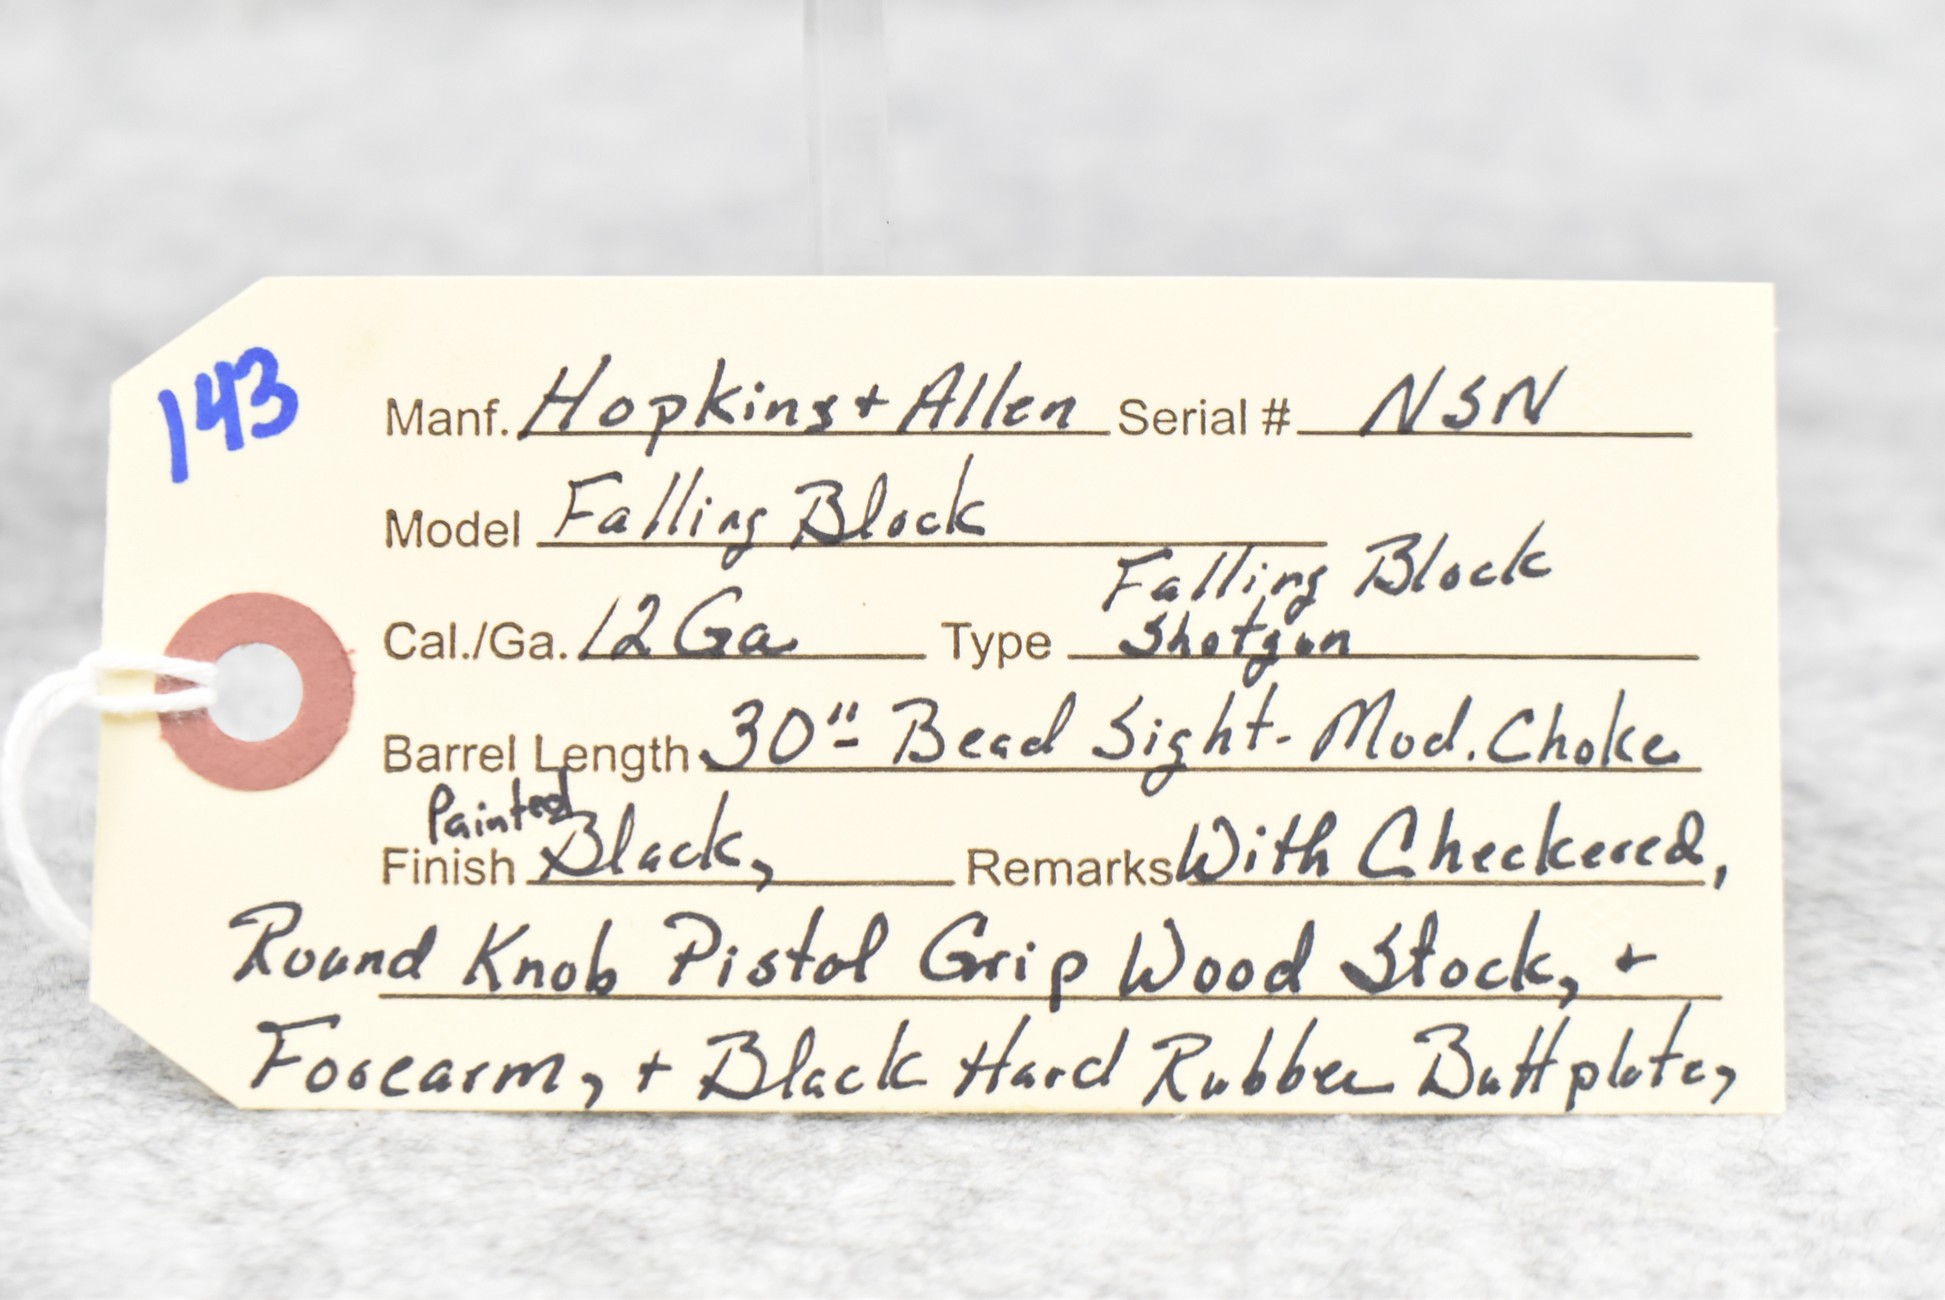 143
Manf. Hopkins + Allen Serial # NSN
Model Falling Block
Cal./Ga. 12 Ga Type Falling Block
Shotgun
Barrel Length 30" - Bead Sight - Mod. Choke
Finish Painted Black, Remarks With Checkered,
Round Knob Pistol Grip Wood Stock, +
Forearm, + Black Hard Rubber Buttplate,